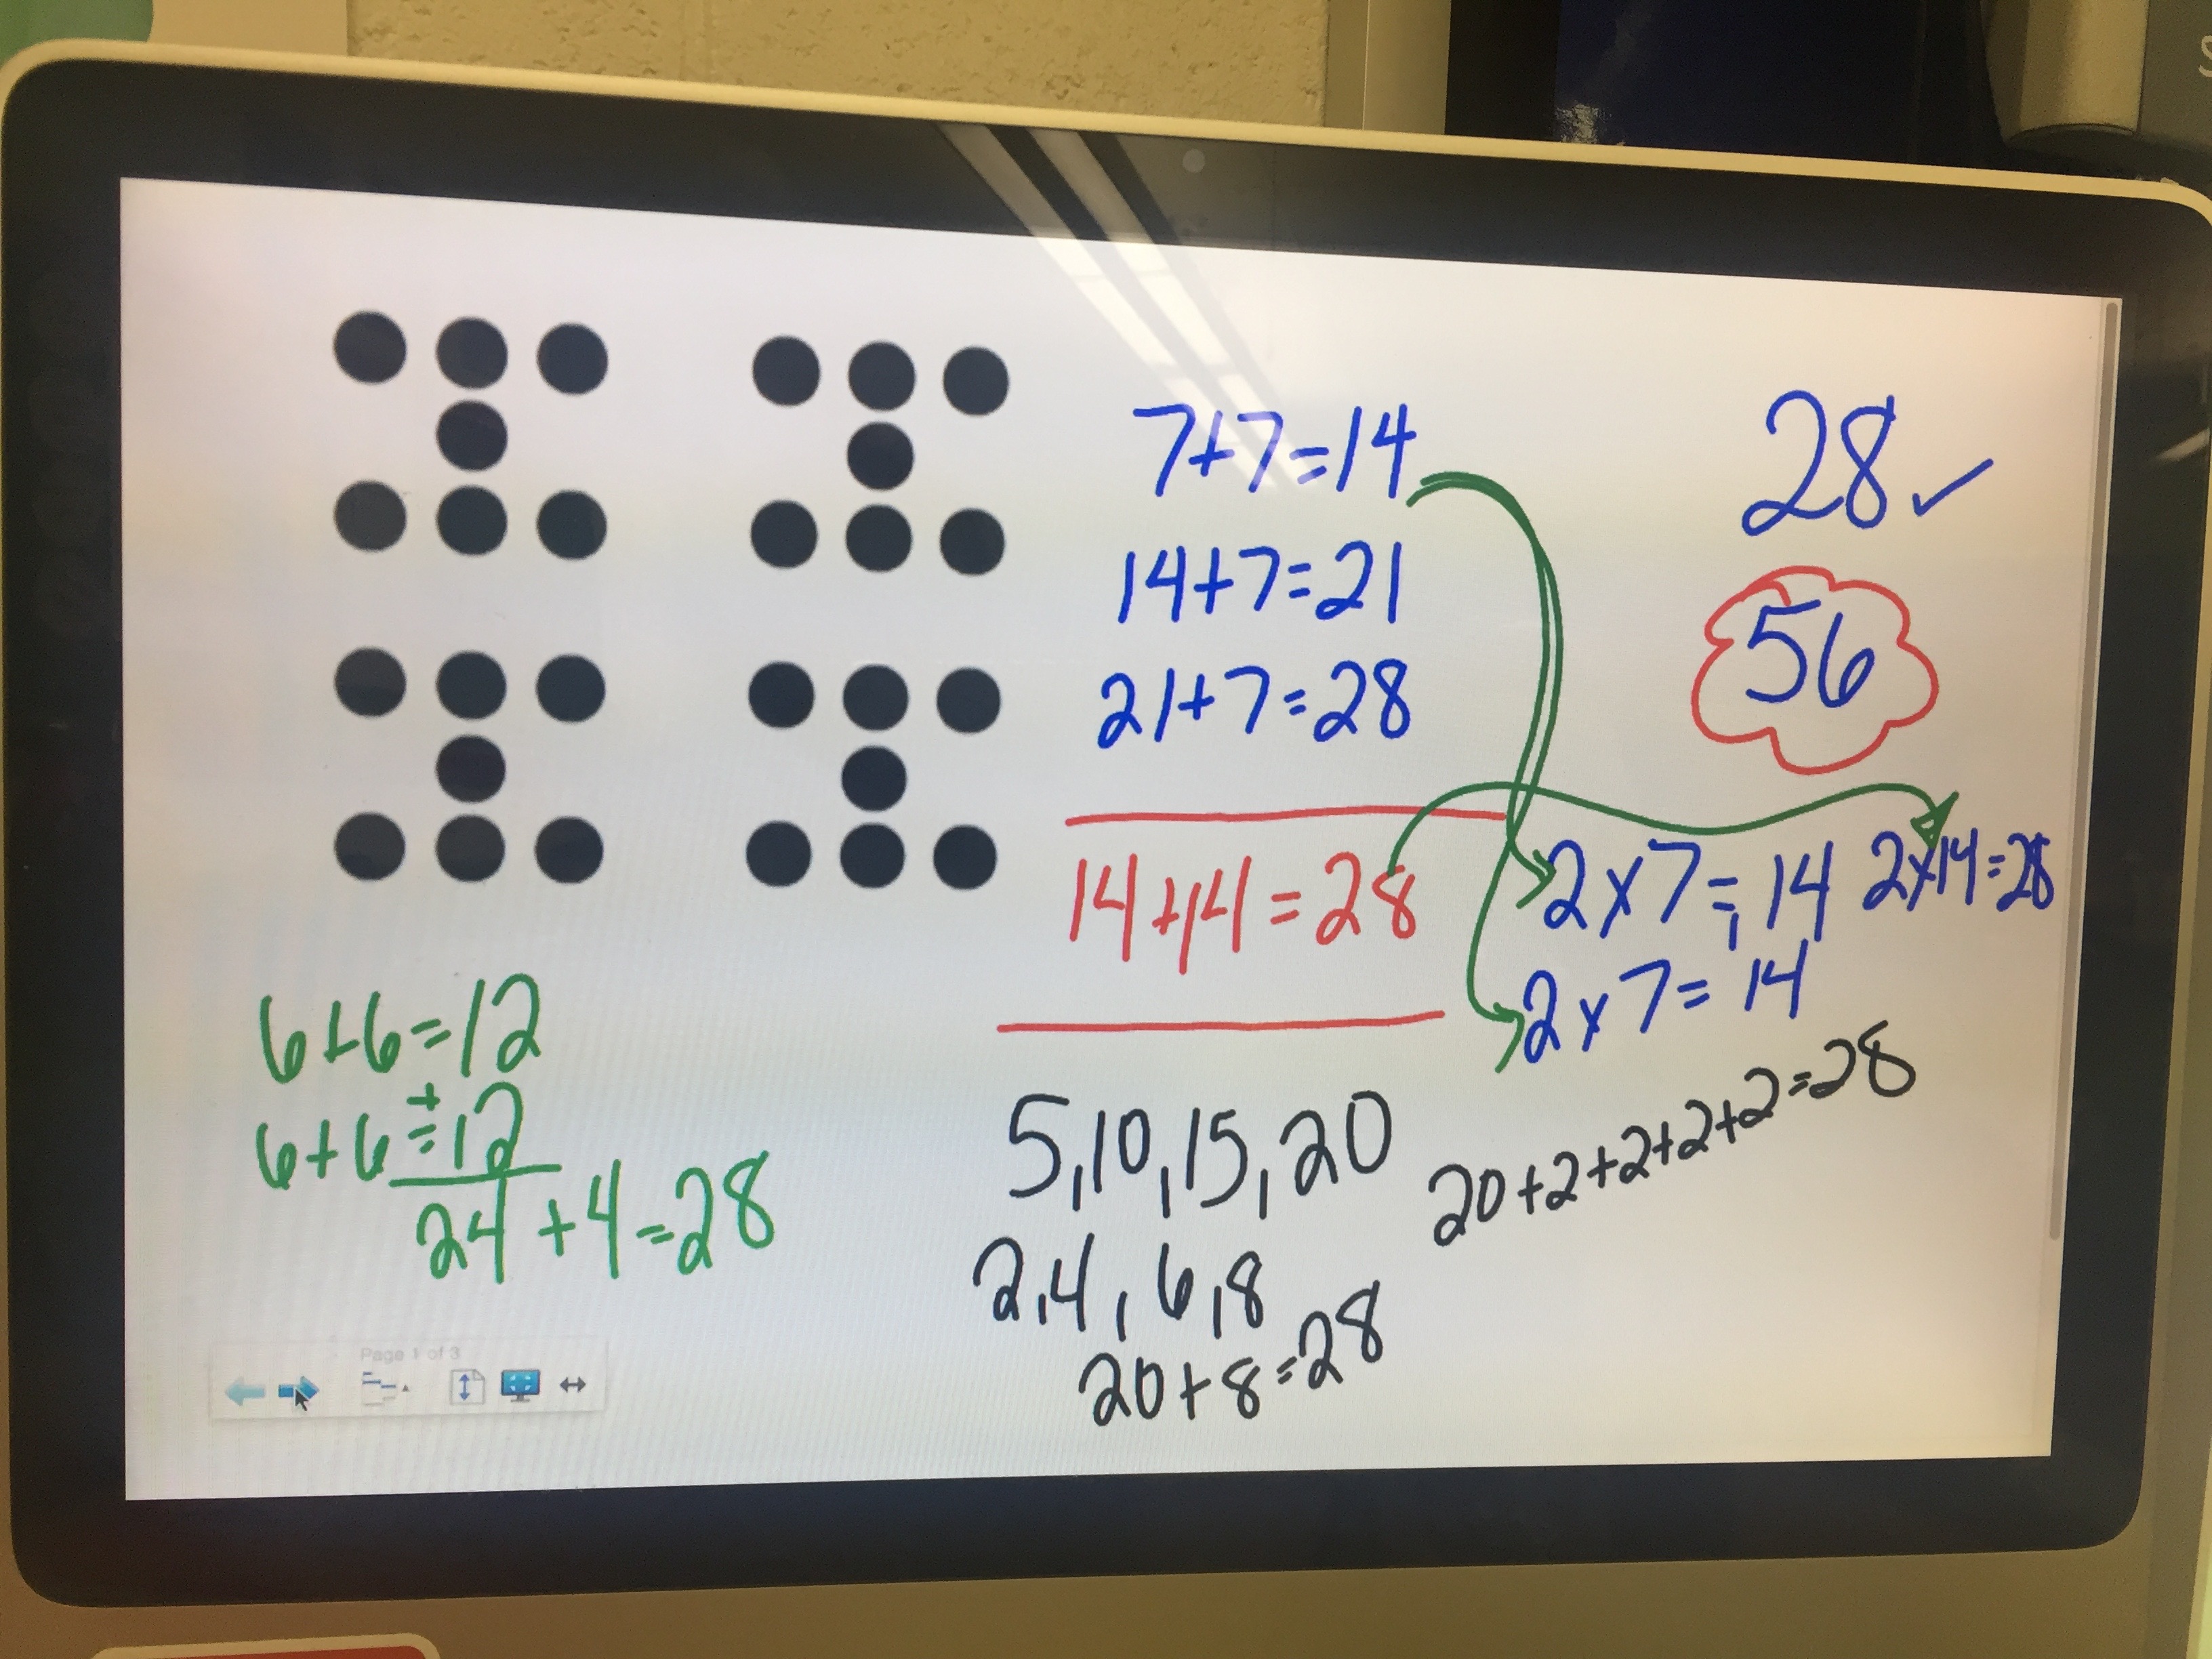 7+7=14
14+7=21
21+7=28
28 ✓
56
14+14=28
2x7=14
2x14=28
2x7=14
6+6=12
+
6+6=12
24+4=28
5,10,15,20
2,4,6,8
20+8=28
20+2+2+2+2=28
Page 1 of 3